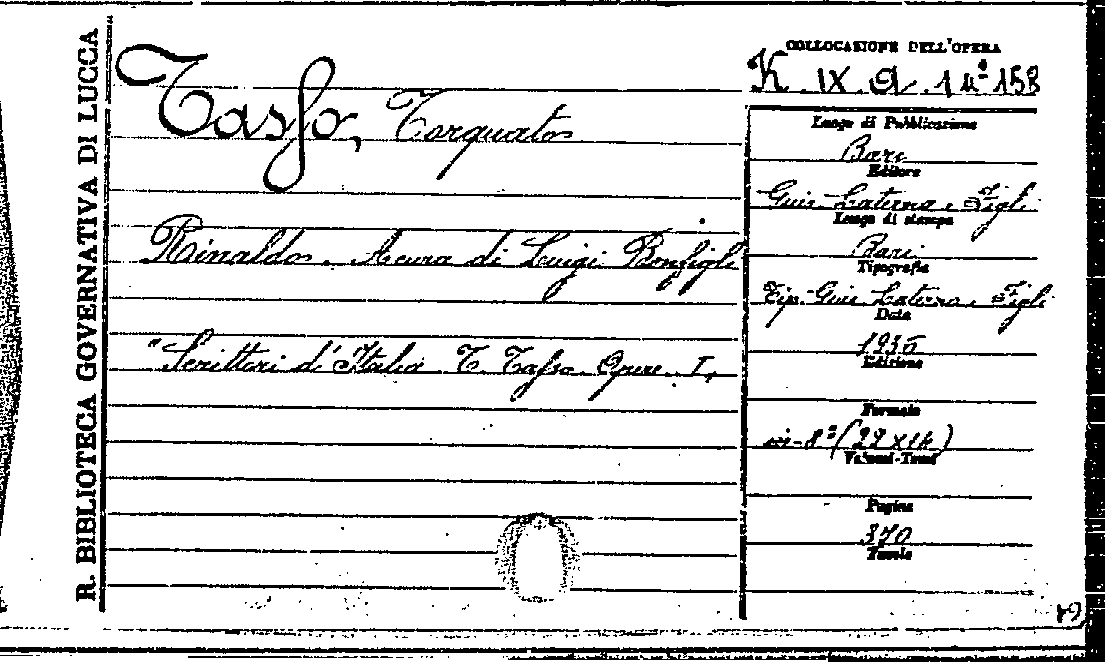 R. BIBLIOTECA GOVERNATIVA DI LUCCA
Tasso, Torquato
Rinaldo. A cura di Luigi Bonfigli
"Scrittori d'Italia. T. Tasso. Opere. I,
COLLOCAZIONE DELL'OPERA
K. IX. a. 14ª 158
Luogo di Pubblicazione
Bari
Editore
Gius. Laterza e Figli
Luogo di stampa
Bari
Tipografia
Tip. Gius. Laterza e Figli
Data
1936
Edizione
Formato
in-8º (22x14)
Volumi-Tomi
Pagine
370
Tavole